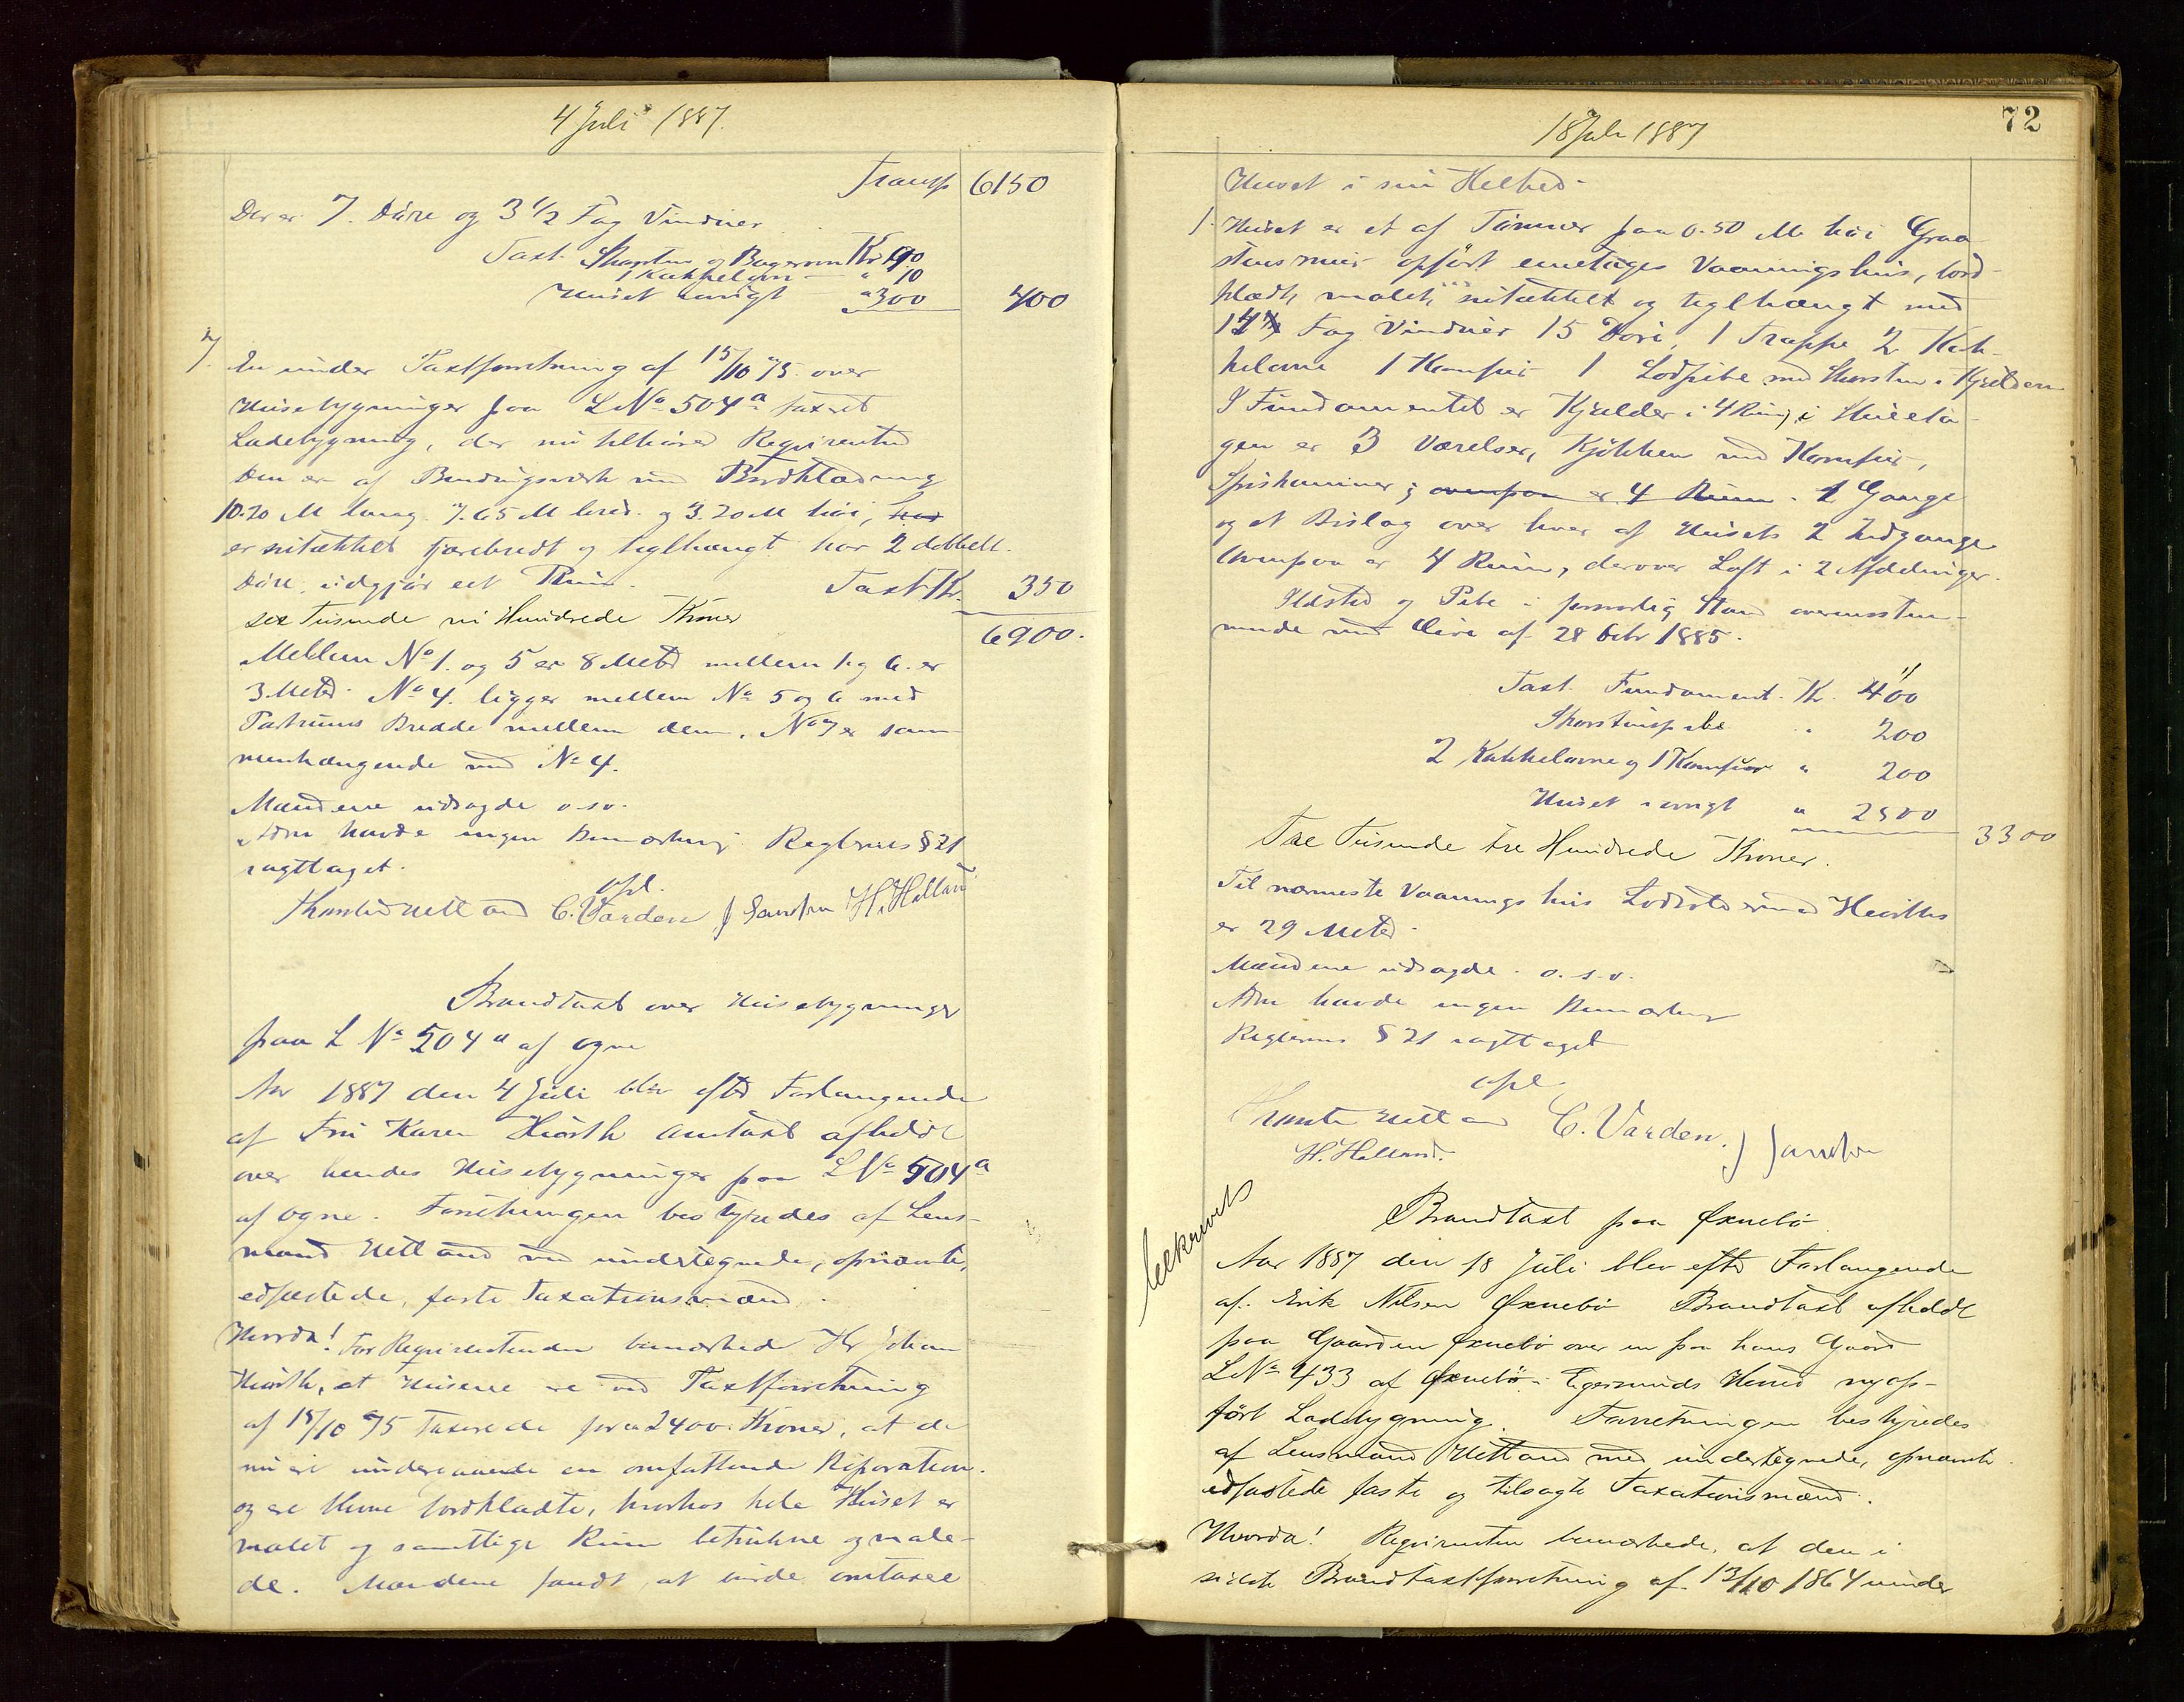 4 Juli 1887.
Transp 6150
Der er 7. Döre og 3 1/2 Fag Vinduer
Taxt. Skorsten og Bagerovn Kr 90
1 Kakkelovn " 10
Huset øvrigt " 300 400
7. En under Taxtforretning af 15/10 75 over
Husebygninger paa L No 504 a taxeret
Ladebygning, der nu tilhører Reqvirenten
Den er af Bindingsværk med Bordklædning
10.20 M lang. 7.65 M bred. og 3.20 M høi, har
er nitækket tjærebredt og teglhængt har 2 dobbelt.
Döre, udgjør eet Rum. Taxt Kr. 350
sex Tusinde ni Hundrede Kroner 6900.
Mellem No 1. og 5 er 8 Meter mellem 1 og 6. er
3 Meter. No 4. ligger mellem No 5 og 6 med
Bredde mellem dem. No 7 er sam-
menhængende med No 4.
Mændene udsagde o.s.v.
Adm havde ingen Bemærkning Reglernes § 21
iagttaget.
opl.
Netland C. Varden J Sandsm H. Helland
Brandtaxt over Husebygninger
paa L No 504 a af Ogne
Aar 1887 den 4 Juli blev efter Forlangende
af Fru Karen Hiorth Omtaxt afholdt
over hendes Husebygninger paa L No 504 a
af Ogne. Forretningen bestyredes af Lens-
mand Netland med undertegnede, opnævnte,
edfæstede, faste Taxationsmænd.
Hvorda! For Reqvirentinden bemærkede Hr Johan
Hiorth, at Husene ere ved Taxtforretning
af 15/10 75 taxerede for 2400 Kroner, at de
nu ere undergaaede en omfattende Reparation.
og ere bordklædte, hvorhos hele Huset er
malet og samtlige Rum betrukne og male-
de. Mændene fandt at burde omtaxere
72
18 Juli 1887
Huset i sin Helhed.
1. Huset er et af Tömmer paa 0.50 M høi Graa
stensmur opført eenetages Vaaningshus, bord-
klædt, malet, nitækket og teglhængt med
14 Fag Vinduer 15 Döre, 1 Trappe 2 Kak-
kelovne 1 Komfur 1 Lodpibe med Skorsten i Kjelderen
I Fundamentet er Kjælder i 4 Rum, i Hueeta-
gen er 3 Værelser, Kjökken med Komfur,
Spiskammer; ovenpaa er 4 Rum. 2 Gange
og et Bislag over hver af Husets 2 Indgange
Ovenpaa er 4 Rum, derover Loft i 2 Afdelinger.
Ildsted og Pibe i forsvarlig Stand overensstem-
mende med Circ af 28 Octr 1885.
Taxt. Fundament. Kr. 400
Skorstenspibe " 200
2 Kakkelovne og 1 Komfur " 200
Huset iøvrigt " 2500
Tre Tusinde tre Hundrede Kroner. 3300
Til nærmeste Vaaningshus
er 29 Meter.
Mændene udsagde. o.s.v.
Adm havde ingen Bemærkning
Reglernes § 21 iagttaget
opl
Netland C. Varden. J Sandsm
H. Helland.
Brandtaxt paa Øxnebö
Aar 1887 den 18 Juli blev efter Forlangende
af. Erik Nilsen Øxnebö Brandtaxt afholdt
paa Gaarden Øxnebö over en paa hans Gaard
L No 433 af Øxnebö i Egersunds Herred nyop-
fört Ladebygning. Forretningen bestyredes
af Lensmand Netland med undertegnede, opnævnte
edfæstede faste og tilsagte Taxationsmænd.
Hvorda! Reqvirenten bemærkede, at den i
sidste Brandtaxtforretning af 13/10 1864 under